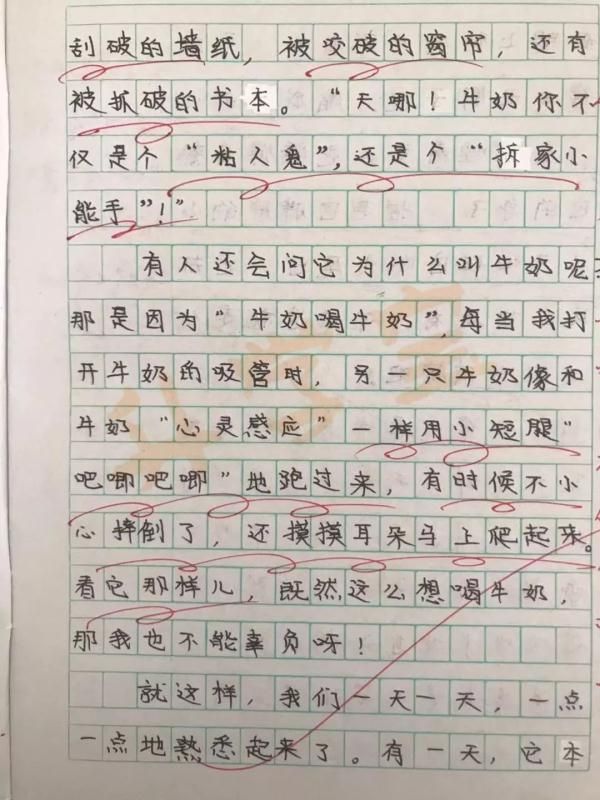 刮破的墙纸，被咬破的窗帘，还有
被抓破的书本。“天哪！牛奶你不
仅是个“粘人鬼”，还是个“拆家小
能手”！”
有人还会问它为什么叫牛奶呢？
那是因为“牛奶喝牛奶”，每当我打
开牛奶的吸管时，另一只牛奶像和
牛奶“心灵感应”一样用小短腿“
吧唧吧唧”地跑过来，有时候不小
心摔倒了，还摸摸耳朵马上爬起来。
看它那样儿，既然这么想喝牛奶，
那我也不能辜负呀！
就这样，我们一天一天，一点
一点地熟悉起来了。有一天，它本